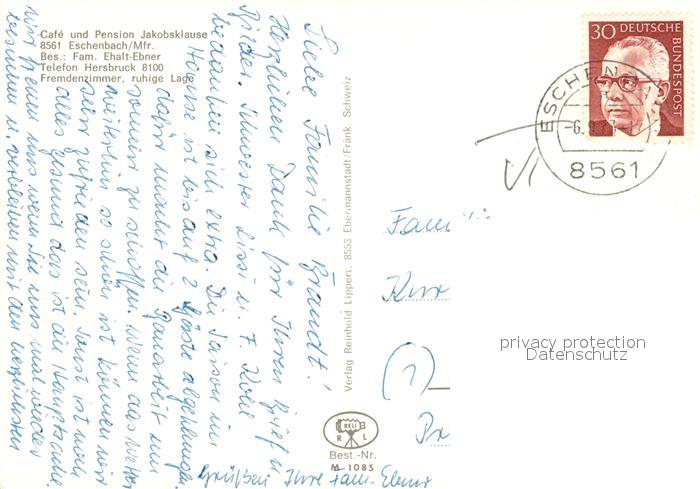 Café und Pension Jakobsklause
8561 Eschenbach/Mfr.
Bes.: Fam. Ehalt-Ebner
Telefon Hersbruck 8100
Fremdenzimmer, ruhige Lage
Liebe Familie Brandt!
Herzlichen Dank für Ihren Brief u.
Bilder. Schwester Lissi u. F. Kohl
bedanken sich extra. Die Saison im
Hause ist bis auf 2 Gäste abgeklungen
dafür macht die Hausarbeit um
so mehr zu schaffen. Wenn das Wetter
weiterhin so schön ist können wir
sehr zufrieden sein. Sonst ist noch
alles gesund das ist die Hauptsache.
wir freuen uns wenn Sie uns mal wieder
besuchen u. verbleiben mit den herzlichsten
Grüßen Ihre Fam. Ebner
Verlag Reinhold Lippert, 8553 Ebermannstadt/Fränk. Schweiz
RELI
R L
Best.-Nr.
M 1085
30 DEUTSCHE
BUNDESPOST
8561
privacy protection
Datenschutz